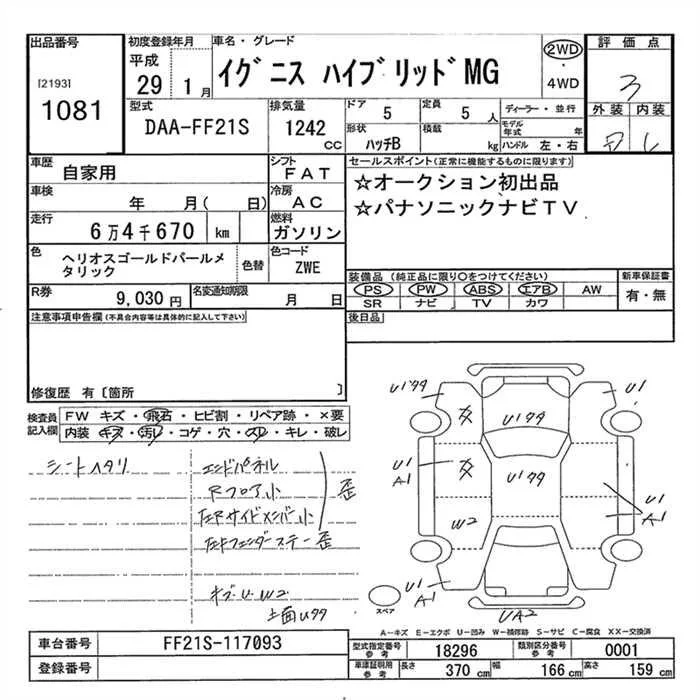 出品番号
[2193]
1081
初度登録年月
平成
29 1 月
車名・グレード
イグニス ハイブリッドMG
2WD
・
4WD
評価点
3
外装 内装
型式
DAA-FF21S
排気量
1242
CC
ドア
5
定員
5 人
形状
ハッチB
積載
kg
ディーラー・並行
モデル年式 年
ハンドル 左・右
車歴
自家用
シフト
FAT
車検
年 月( 日)
冷房
AC
走行
6万4千670 km
燃料
ガソリン
色
ヘリオスゴールドパールメ
タリック
色替
色コード
ZWE
R券
9,030 円
名変通知期限
月 日
セールスポイント(正常に機能するものに限ります)
☆オークション初出品
☆パナソニックナビTV
装備品(純正品に限り○をつけてください)
PS PW ABS エアB AW
SR ナビ TV カワ
新車保証書
有・無
注意事項申告欄(不具合内容等は具体的に記入して下さい)
後日品
修復歴 有〔箇所 〕
検査員
記入欄
FW キズ・飛石・ヒビ割・リペア跡・×要
内装 キズ・汚レ・コゲ・穴・スレ・キレ・破レ
シートハタリ
エンドパネル
Rフロア小
左Rサイドメンバー小
歪
左Fフェンダーステー歪
U W2
上面Uキタ
U1
U1
A1
W2
U1
A1
U1
A1
UA2
スペア
A-キズ E-エクボ U-凹み W-補修跡 S-サビ C-腐食 XX-交換済
車台番号
FF21S-117093
登録番号
型式指定番号
参考
18296
類別区分番号
参考
0001
車庫証明用
参考
長さ
370 cm
幅
166 cm
高さ
159 cm